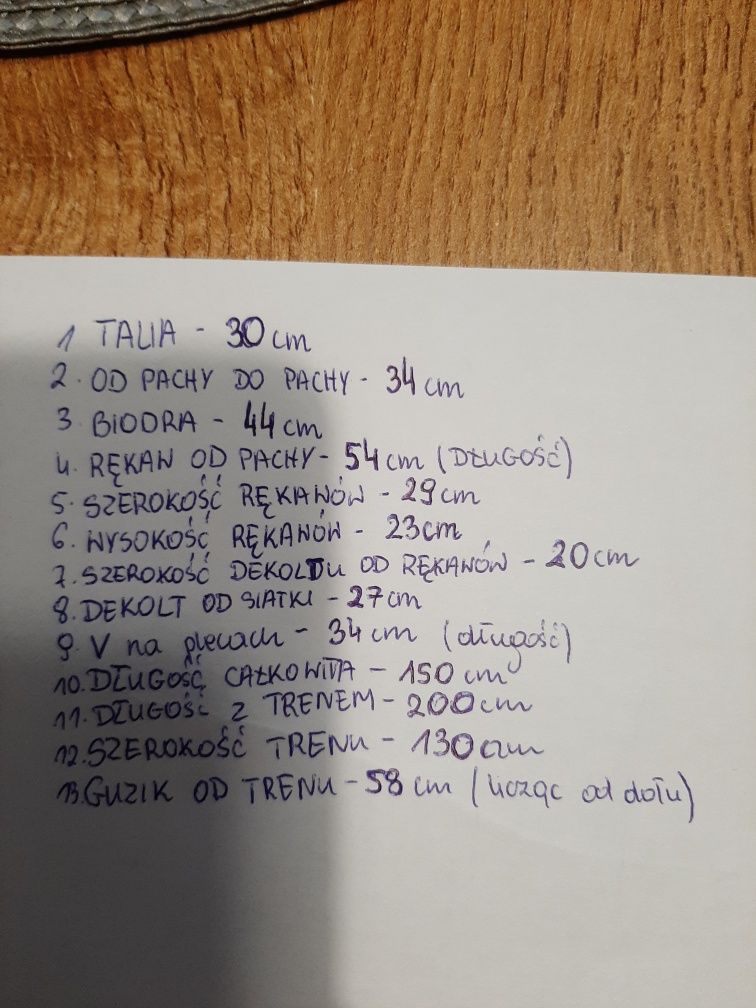 1 TALIA - 30 cm
2. OD PACHY DO PACHY - 34 cm
3 BIODRA - 44 cm
4. RĘKAW OD PACHY - 54 cm (DŁUGOŚĆ)
5. SZEROKOŚĆ RĘKAWÓW - 29 cm
6. WYSOKOŚĆ RĘKAWÓW - 23cm
7. SZEROKOŚĆ DEKOLTU OD RĘKAWÓW - 20 cm
8. DEKOLT OD SIATKI - 27 cm
9. V na plecach - 34 cm (długość)
10. DŁUGOŚĆ CAŁKOWITA - 150 cm
11. DŁUGOŚĆ Z TRENEM - 200 cm
12. SZEROKOŚĆ TRENU - 130 cm
13. GUZIK OD TRENU - 58 cm (licząc od dołu)